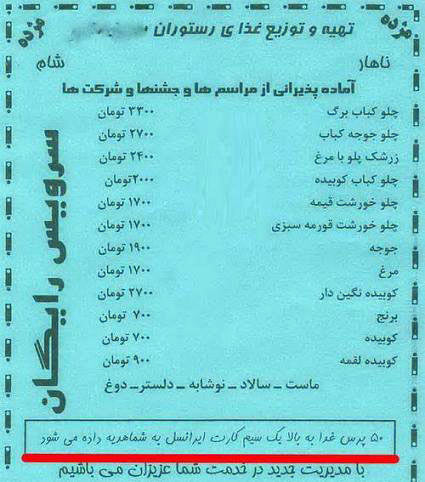 مژده
مژده
تهیه و توزیع غذای رستوران
ناهار شام
آماده پذیرائی از مراسم ها و جشنها و شرکت ها
چلو کباب برگ ۳۳۰۰ تومان
چلو جوجه کباب ۲۷۰۰ تومان
زرشک پلو با مرغ ۲۴۰۰ تومان
چلو کباب کوبیده ۲۰۰۰تومان
چلو خورشت قیمه ۱۷۰۰ تومان
چلو خورشت قورمه سبزی ۱۷۰۰ تومان
جوجه ۱۹۰۰ تومان
مرغ ۱۷۰۰ تومان
کوبیده نگین دار ۲۷۰۰ تومان
برنج ۷۰۰ تومان
کوبیده ۷۰۰ تومان
کوبیده لقمه ۹۰۰ تومان
سرویس رایگان
ماست ـ سالاد ـ نوشابه ـ دلستر ـ دوغ
۵۰ پرس غذا به بالا یک سیم کارت ایرانسل به شماهدیه داده می شود
با مدیریت جدید در خدمت شما عزیزان می باشیم